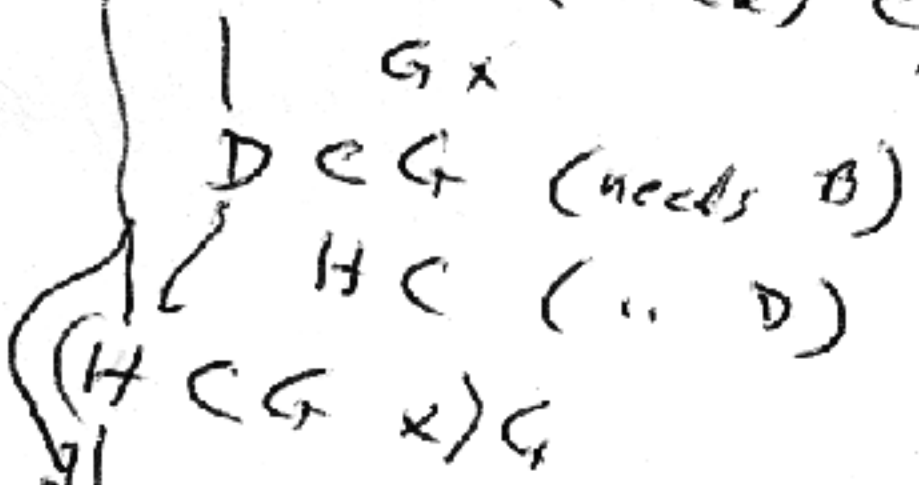 G x
D C G (needs B)
H C (" D)
(H C G x) G